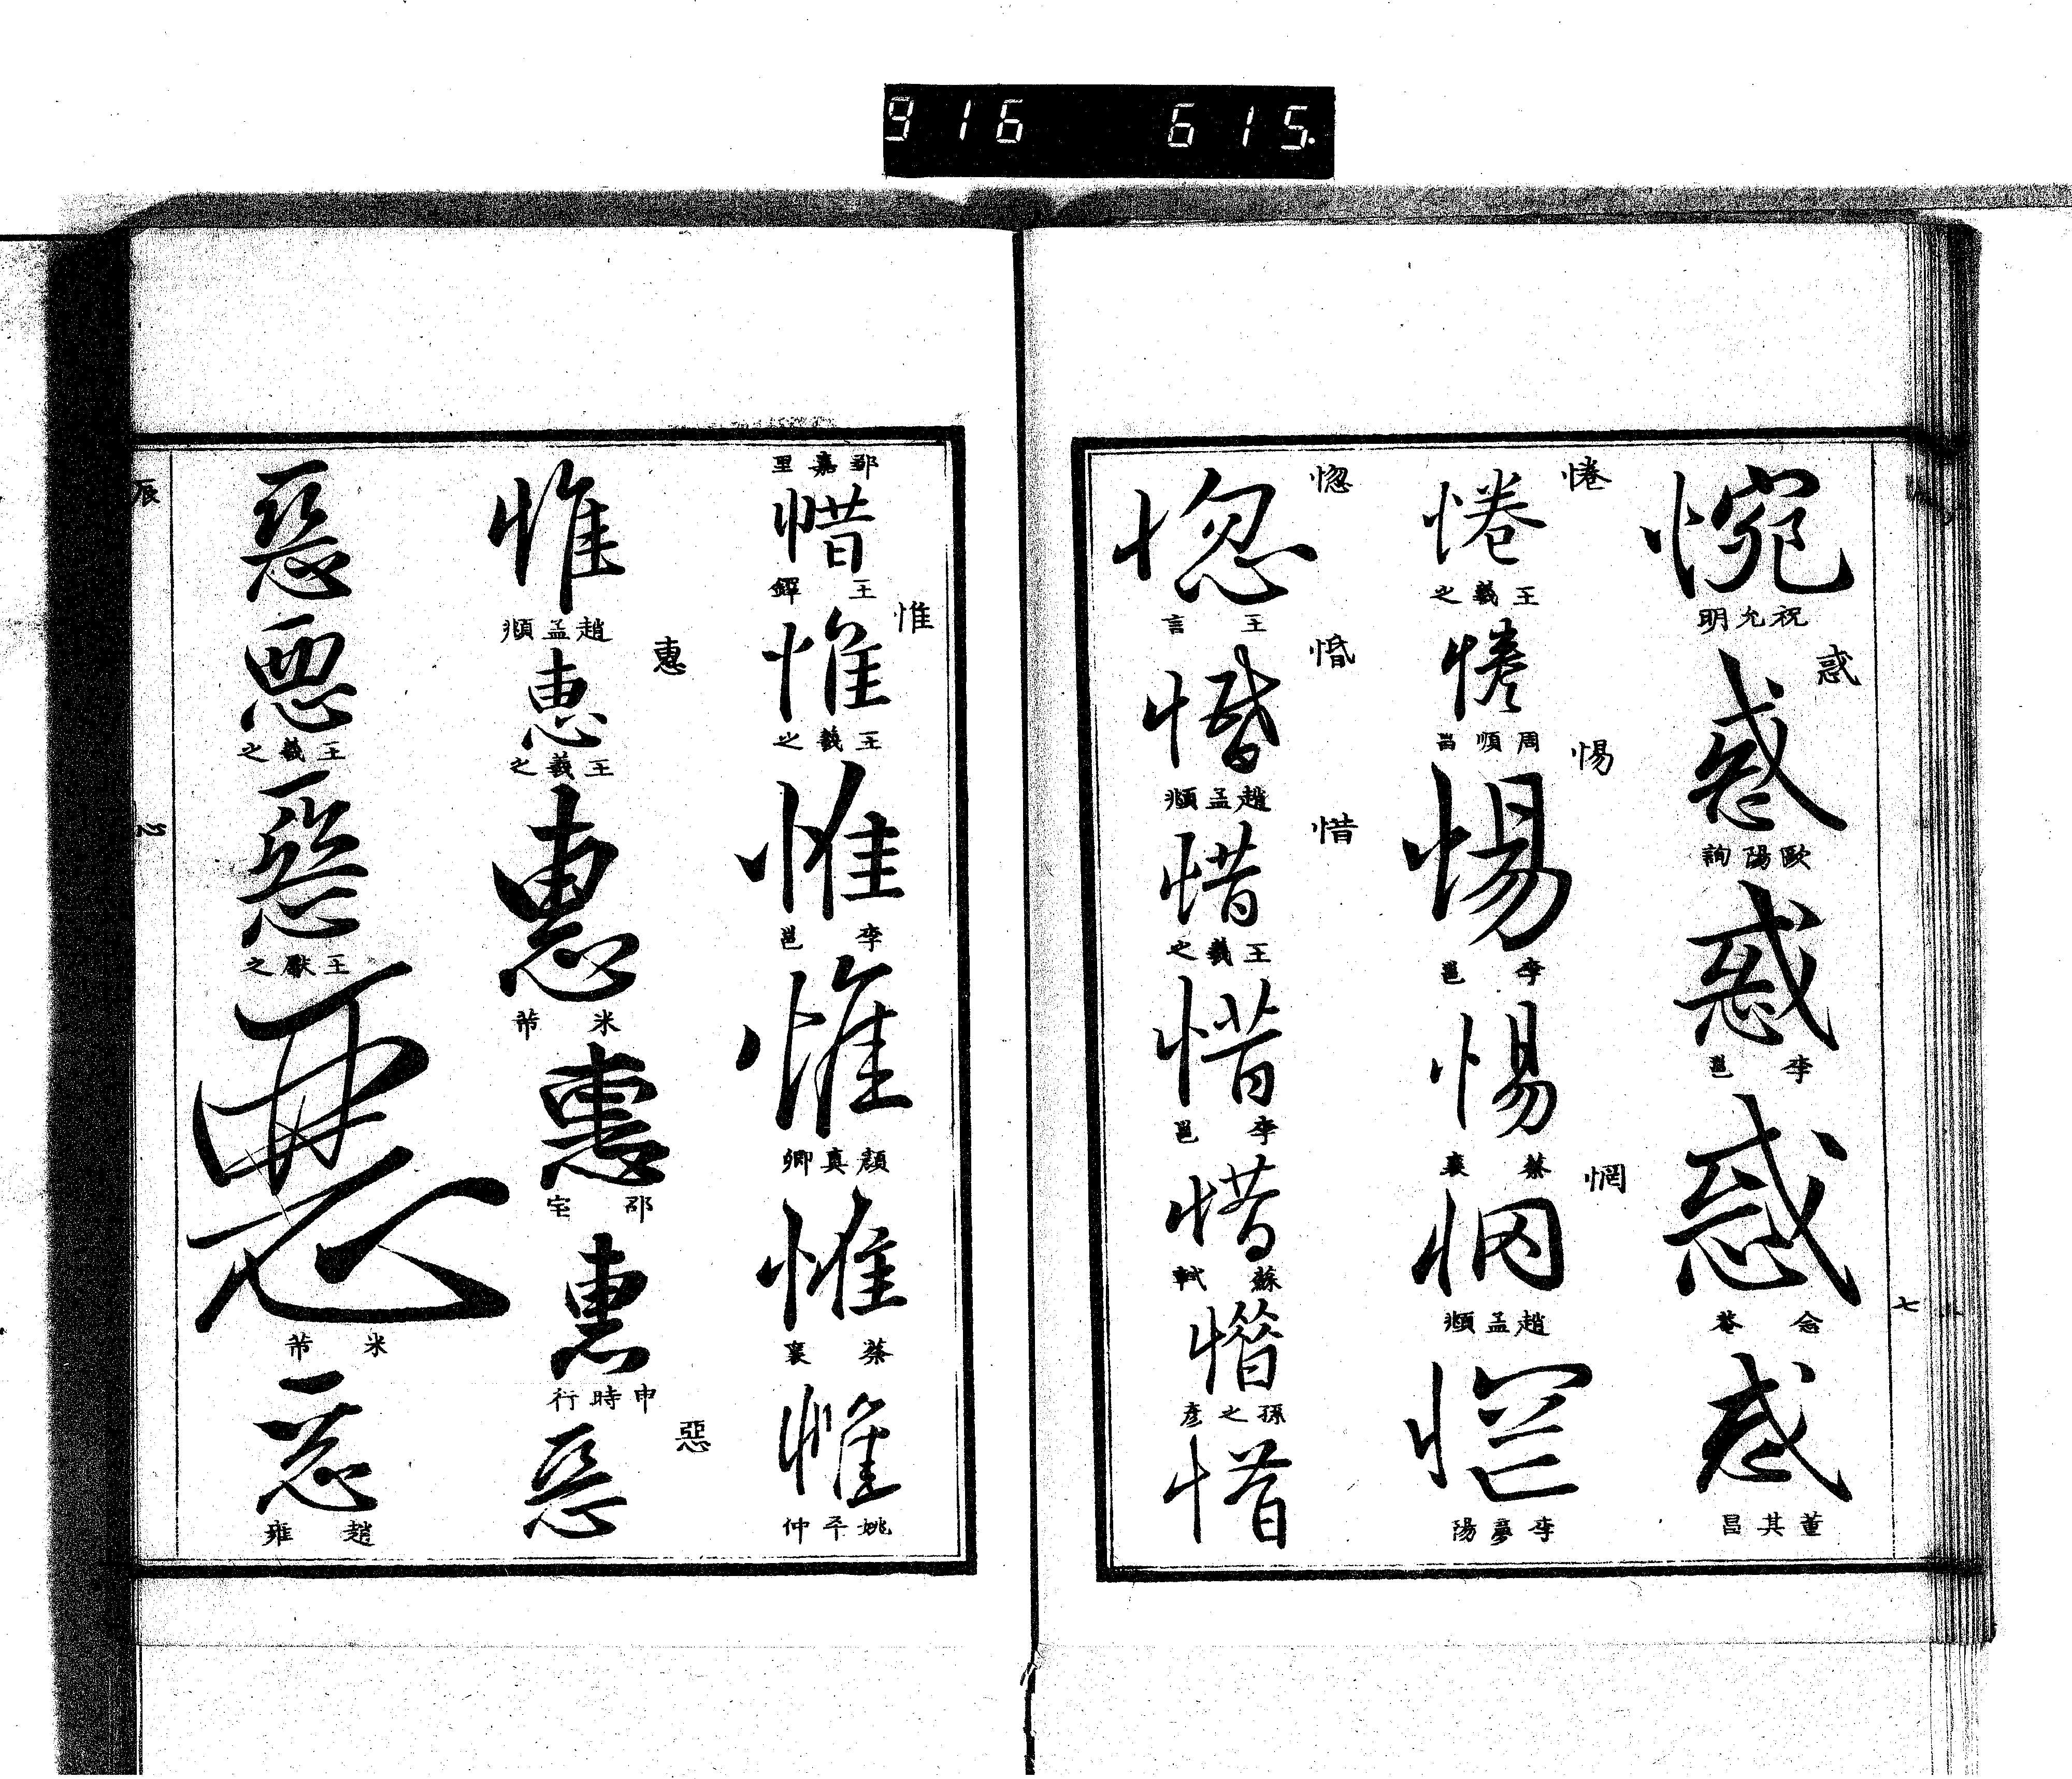 916 615.
惋
祝允明
惑
惑
歐陽詢
惑
李邕
惑
念菴
惑
董其昌
惓
惓
王羲之
惓
周順昌
惕
惕
李邕
惕
蔡襄
惘
惘
趙孟頫
惘
李夢陽
惚
惚
王言
惛
惛
趙孟頫
惜
惜
王羲之
惜
李邕
惜
蘇軾
惜
孫之彥
惜
七
鄒嘉里
惜
王鐸
惟
惟
王羲之
惟
李邕
惟
顏真卿
惟
蔡襄
惟
姚平仲
惟
趙孟頫
惠
惠
王羲之
惠
米芾
惠
邵宝
惠
申時行
惡
惡
惡
惡
王羲之
惡
王獻之
惡
米芾
惡
趙雍
辰
心